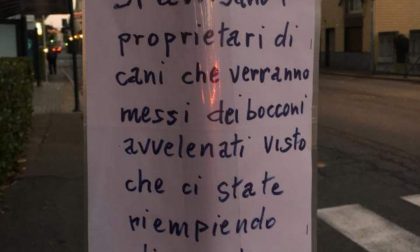 proprietari di
cani che verranno
messi dei bocconi
avvelenati visto
che ci state
riempiendo